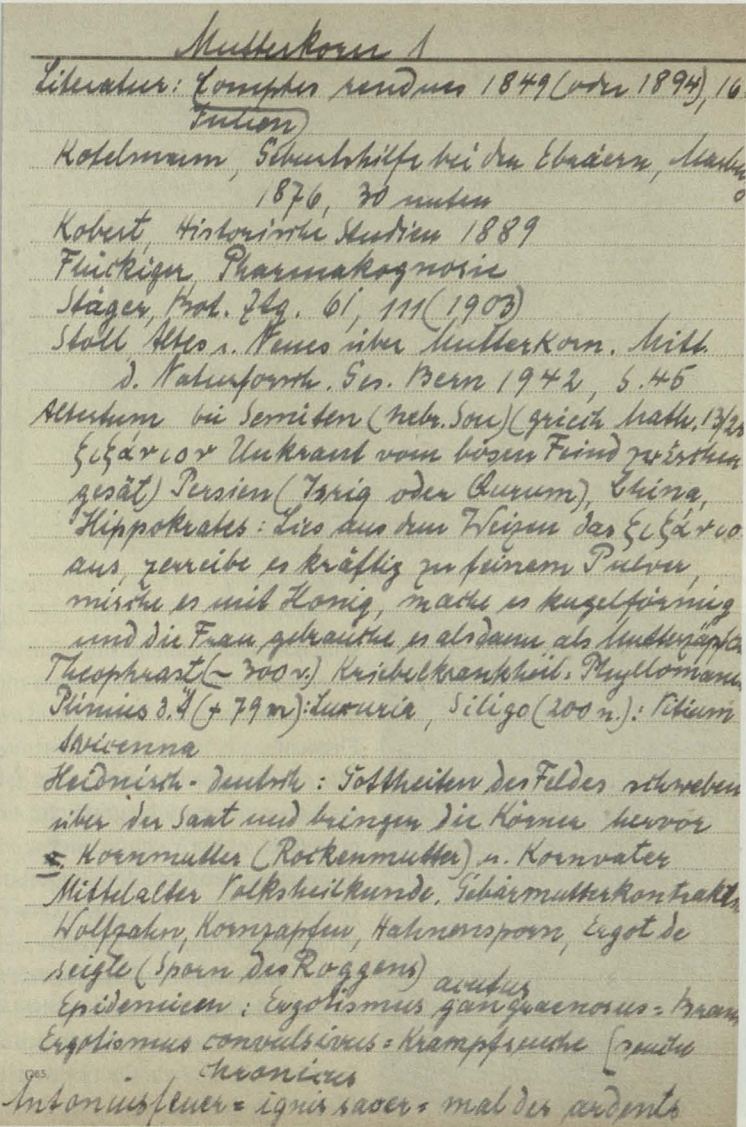 Mutterkorn 1
Literatur: Comptes rendues 1849 (oder 1894), 16
Julien)
Kotelmann, Geburtshilfe bei den Ebräern, Marbu
1876, 30 unten
Kobert, Historische Studien 1889
Flückiger, Pharmakognosie
Stäger, Bot. Ztg. 61, 111 (1903)
Stoll Altes u. Neues über Mutterkorn. Mitt.
d. Naturforsch. Ges. Bern 1942, S. 45
Altertum bei Semiten (hebr. Son) (griech Math. 13/25
ξιζάνιον Unkraut vom bösen Feind zwischen
gesät) Persien ( oder Qurum), China,
Hippokrates: Lies aus dem Weizen das ξιζάνιο
aus, zerreibe es kräftig zu feinem Pulver,
mische es mit Honig, mache es kugelförmig
und die Frau gebrauche es alsdann als Mutterzäpfch
Theophrast (~ 300 v.) Kriebelkrankheit = Phylloman
Plinius d. Ä (+ 79 n): Luxuria, Siligo (200 n.): Vitium
Avicenna
Heidnisch-deutsch: Gottheiten des Feldes schweben
über der Saat und bringen die Körner hervor
= Kornmutter (Rockenmutter) u. Kornvater
Mittelalter Volksheilkunde. Gebärmutterkontrakt
Wolfzahn, Kornzapfen, Hahnensporn, Ergot de
seigle (Sporn des Roggens)
acutus
Epidemieen: Ergotismus gangraenosus = Bran
Ergotismus convulsivus = Krampfseuche [seuche
chronicus
Antoniusfeuer = ignis sacer = mal des ardents